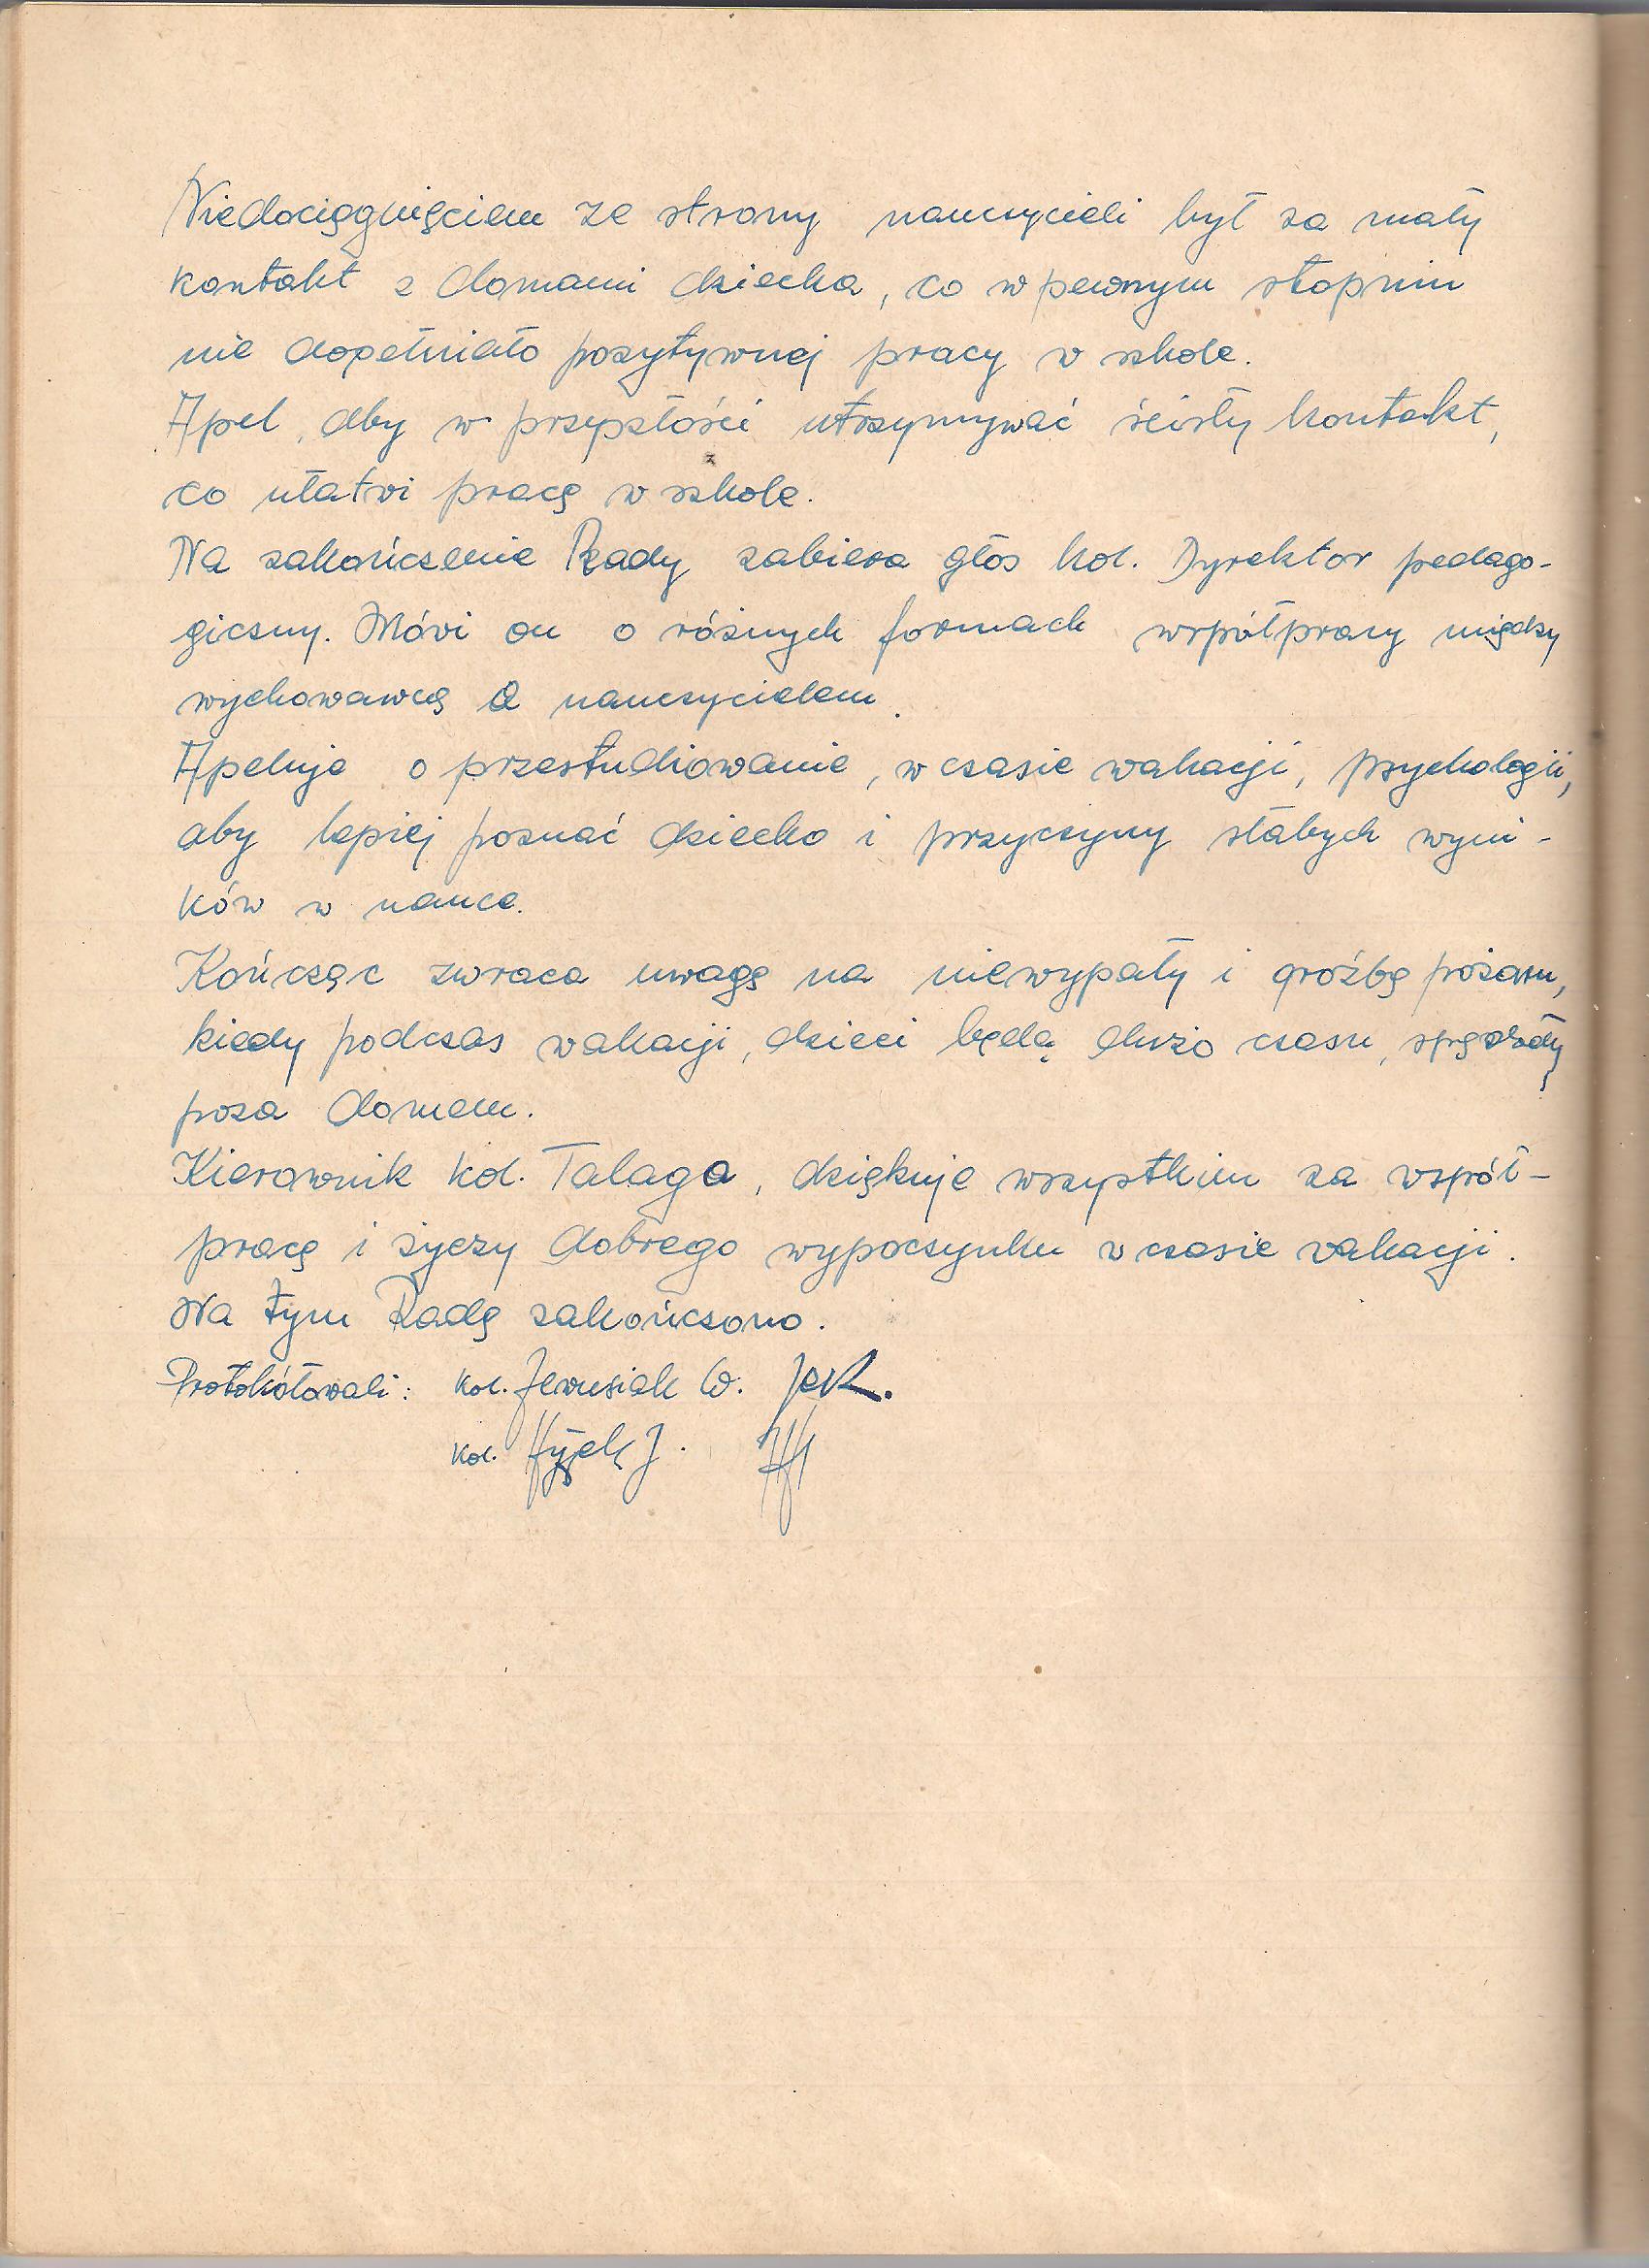 Niedociągnięciem ze strony nauczycieli był za mały
kontakt z domami dziecka, co w pewnym stopniu
nie dopełniało pozytywnej pracy w szkole.
Apel, aby w przyszłości utrzymywać ścisły kontakt,
co ułatwi pracę w szkole.
Na zakończenie Rady zabiera głos kol. Dyrektor pedago-
giczny. Mówi on o różnych formach współpracy między
wychowawcą a nauczycielem.
Apeluje o przestudiowanie, w czasie wakacji, psychologii,
aby lepiej poznać dziecko i przyczyny słabych wyni-
ków w nauce.
Kończąc zwraca uwagę na niewypały i groźbę pożaru,
kiedy podczas wakacji, dzieci będą dużo czasu, spędzały
poza domem.
Kierownik kol. Talaga, dziękuje wszystkim za współ-
pracę i życzy dobrego wypoczynku w czasie wakacji.
Na tym Radę zakończono.
Protokółowali: kol. Jerusiak W.
kol. J.